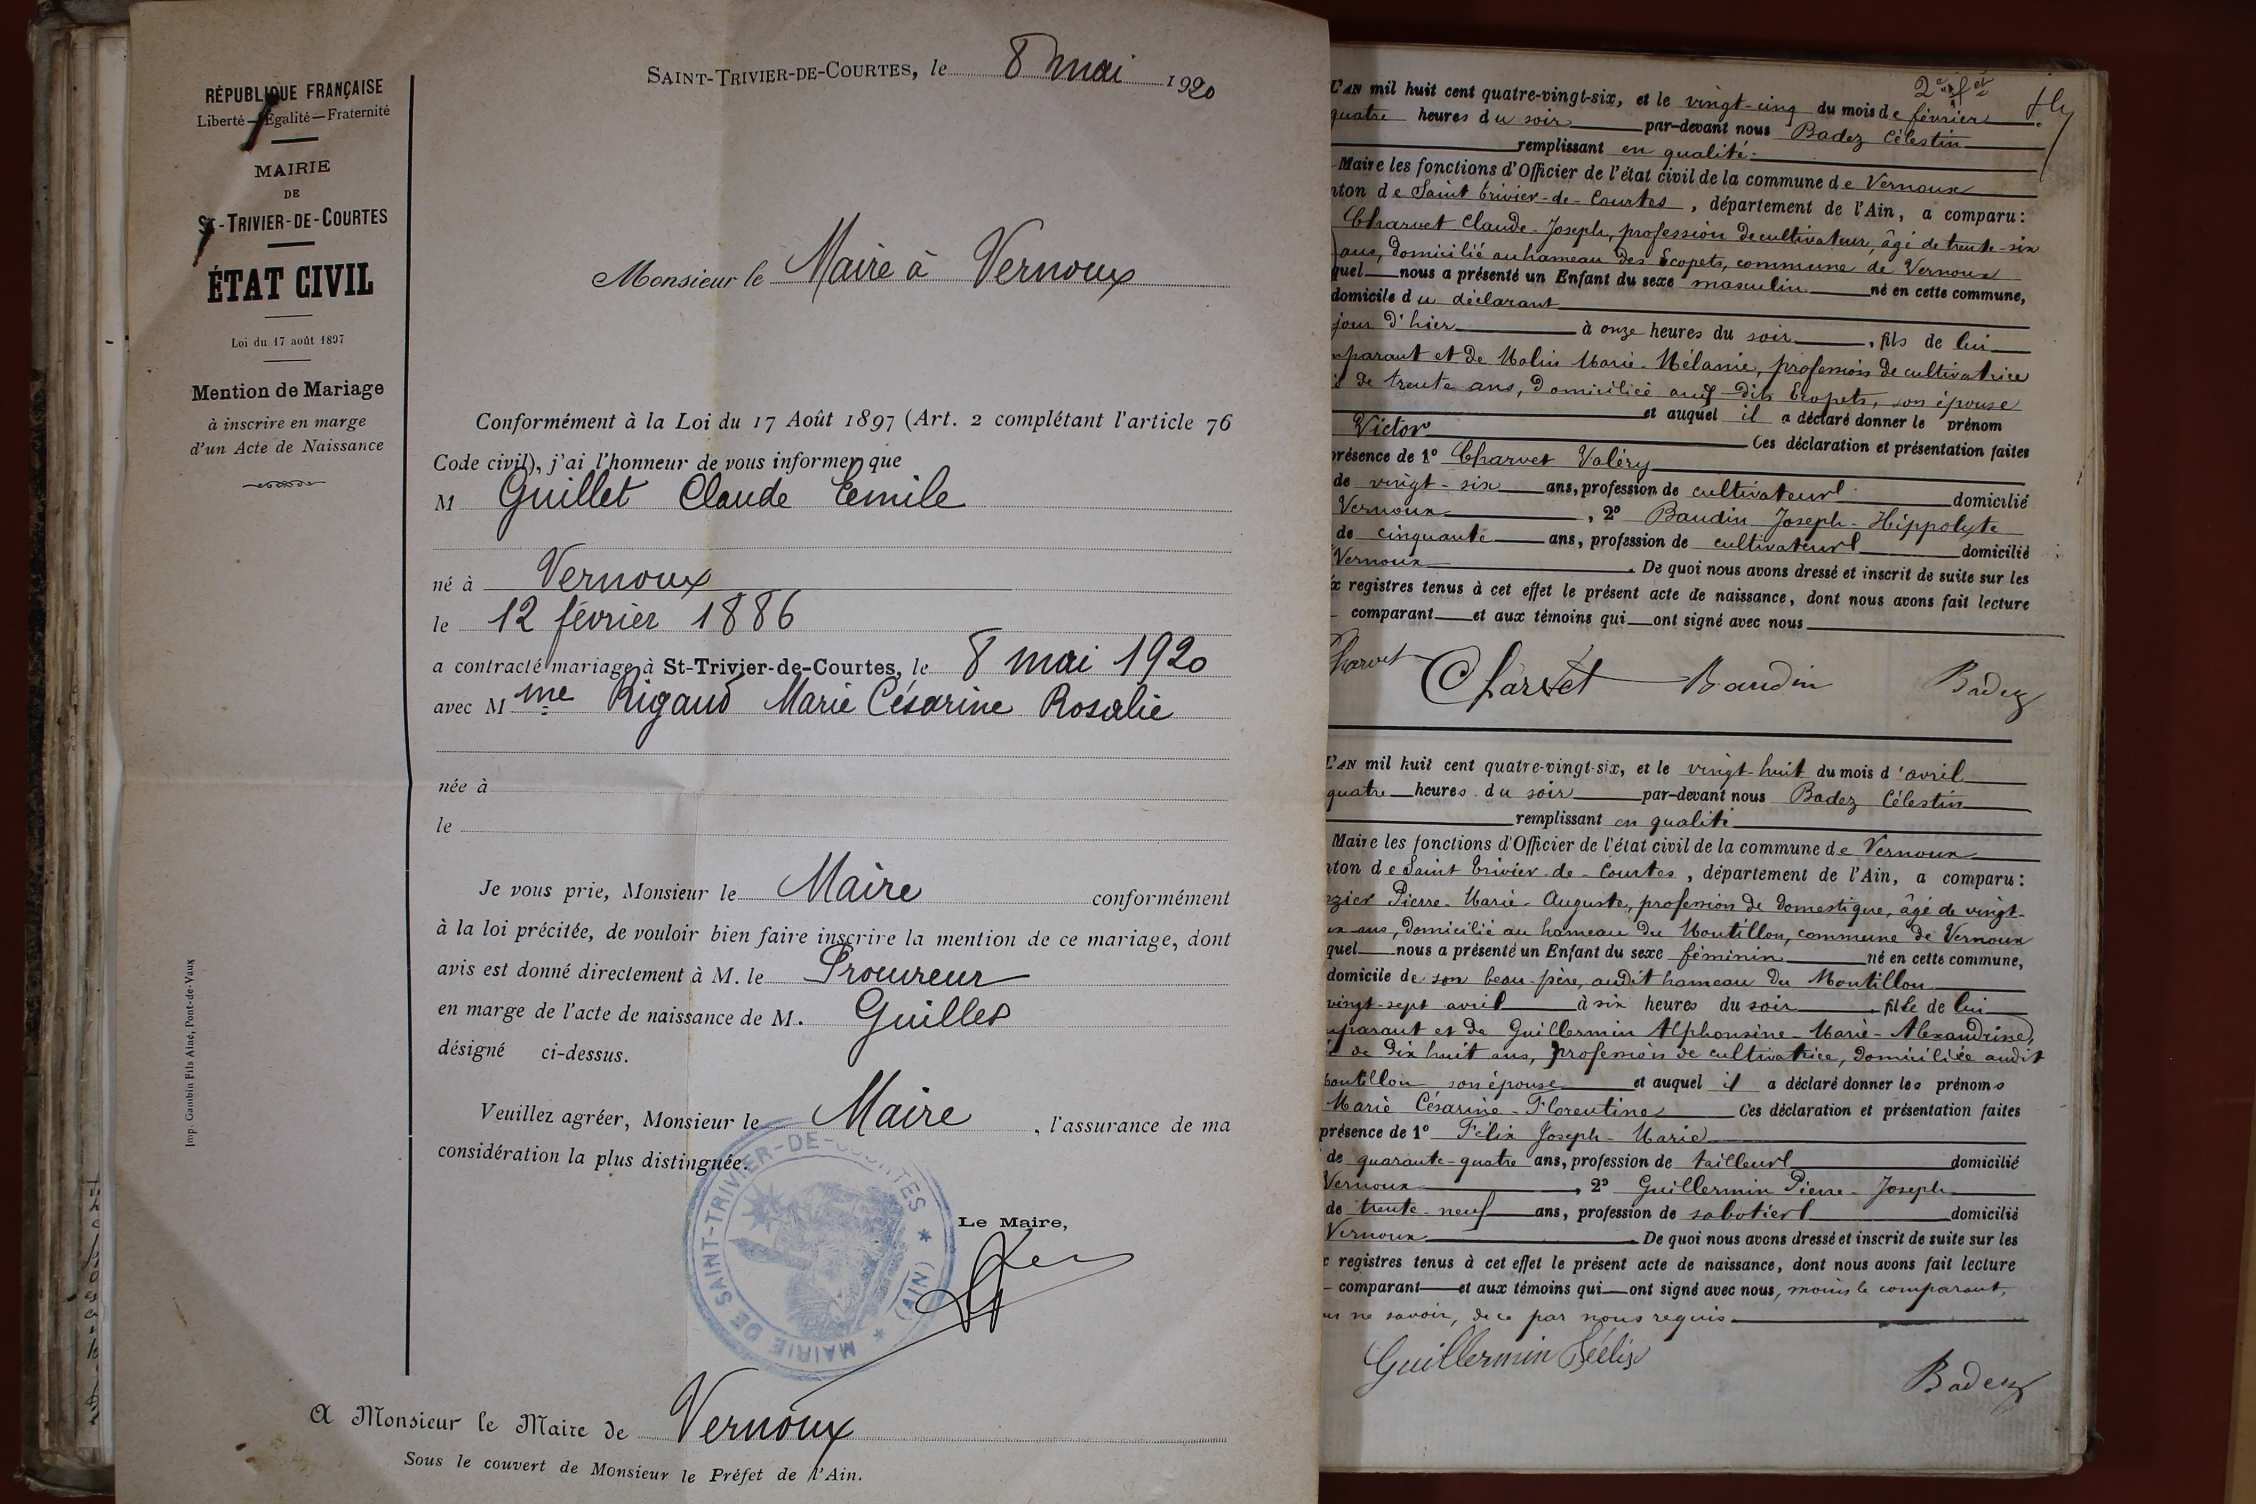 RÉPUBLIQUE FRANÇAISE
Liberté — Égalité — Fraternité
MAIRIE
DE
St-TRIVIER-DE-COURTES
ÉTAT CIVIL
Loi du 17 août 1897
Mention de Mariage
à inscrire en marge
d'un Acte de Naissance
Imp. Gambin Fils Aîné, Pont-de-Vaux
SAINT-TRIVIER-DE-COURTES, le 8 mai 1920
Monsieur le Maire à Vernoux
Conformément à la Loi du 17 Août 1897 (Art. 2 complétant l'article 76
Code civil), j'ai l'honneur de vous informer que
M Guillet Claude Emile
né à Vernoux
le 12 février 1886
a contracté mariage à St-Trivier-de-Courtes, le 8 mai 1920
avec M me Rigaud Marie Césarine Rosalie
née à
le
Je vous prie, Monsieur le Maire conformément
à la loi précitée, de vouloir bien faire inscrire la mention de ce mariage, dont
avis est donné directement à M. le Procureur
en marge de l'acte de naissance de M. Guillet
désigné ci-dessus.
Veuillez agréer, Monsieur le Maire, l'assurance de ma
considération la plus distinguée.
MAIRIE DE SAINT-TRIVIER-DE-COURTES * (AIN) *
Le Maire,
A Monsieur le Maire de Vernoux
Sous le couvert de Monsieur le Préfet de l'Ain.
L'AN mil huit cent quatre-vingt-six, et le vingt-cinq du mois de février
quatre heures du soir par-devant nous Badez Célestin
remplissant en qualité
Maire les fonctions d'Officier de l'état civil de la commune de Vernoux
nton de Saint Trivier-de-Courtes, département de l'Ain, a comparu:
Charvet Claude-Joseph, profession de cultivateur, âgé de trente-six
ans, domicilié au hameau des Ecopets, commune de Vernoux
quel nous a présenté un Enfant du sexe masculin né en cette commune,
domicile du déclarant
jour d'hier à onze heures du soir, fils de lui
mparant et de Molin Marie-Mélanie, profession de cultivatrice
de trente ans, domiciliée aux dits Ecopets, son épouse
et auquel il a déclaré donner le prénom
Victor Ces déclaration et présentation faites
présence de 1° Charvet Valéry
de vingt-six ans, profession de cultivateur domicilié
Vernoux, 2° Baudin Joseph-Hippolyte
de cinquante ans, profession de cultivateur domicilié
Vernoux. De quoi nous avons dressé et inscrit de suite sur les
x registres tenus à cet effet le présent acte de naissance, dont nous avons fait lecture
comparant et aux témoins qui ont signé avec nous
Charvet Charvet Baudin Badez
L'AN mil huit cent quatre-vingt-six, et le vingt-huit du mois d'avril
quatre heures du soir par-devant nous Badez Célestin
remplissant en qualité
Maire les fonctions d'Officier de l'état civil de la commune de Vernoux
nton de Saint Trivier-de-Courtes, département de l'Ain, a comparu:
zier Pierre-Marie-Auguste, profession de domestique, âgé de vingt-
ans, domicilié au hameau du Montillon, commune de Vernoux
quel nous a présenté un Enfant du sexe féminin né en cette commune,
domicile de son beau-père, audit hameau du Montillon
vingt-sept avril à six heures du soir, fille de lui
mparant et de Guillermin Alphonsine-Marie-Alexandrine,
de dix huit ans, profession de cultivatrice, domiciliée audit
Montillon son épouse et auquel il a déclaré donner les prénoms
Marie Césarine-Florentine Ces déclaration et présentation faites
présence de 1° Félix Joseph-Marie
de quarante-quatre ans, profession de tailleur domicilié
Vernoux, 2° Guillermin Pierre-Joseph
de trente-neuf ans, profession de sabotier domicilié
Vernoux. De quoi nous avons dressé et inscrit de suite sur les
x registres tenus à cet effet le présent acte de naissance, dont nous avons fait lecture
comparant et aux témoins qui ont signé avec nous, moins le comparant,
ne savoir, de ce par nous requis
Guillermin Félix Badez